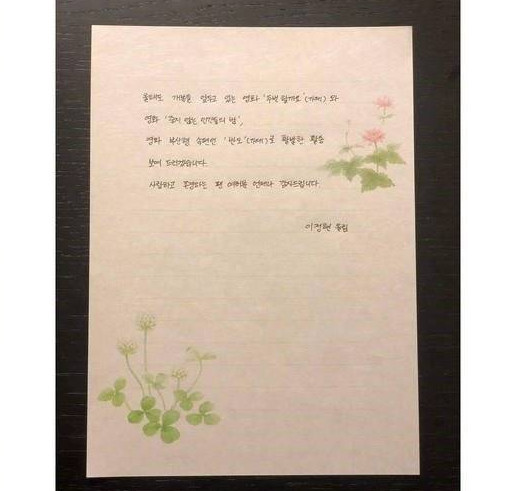 올해도 개봉을 앞두고 있는 영화 '두번 할까요'(가제) 와
영화 '죽지 않는 인간들의 밤',
영화 부산행 속편인 '반도'(가제)로 활발한 활동
보여 드리겠습니다.
사랑하고 존경하는 팬 여러분 언제나 감사드립니다
이정현 올림